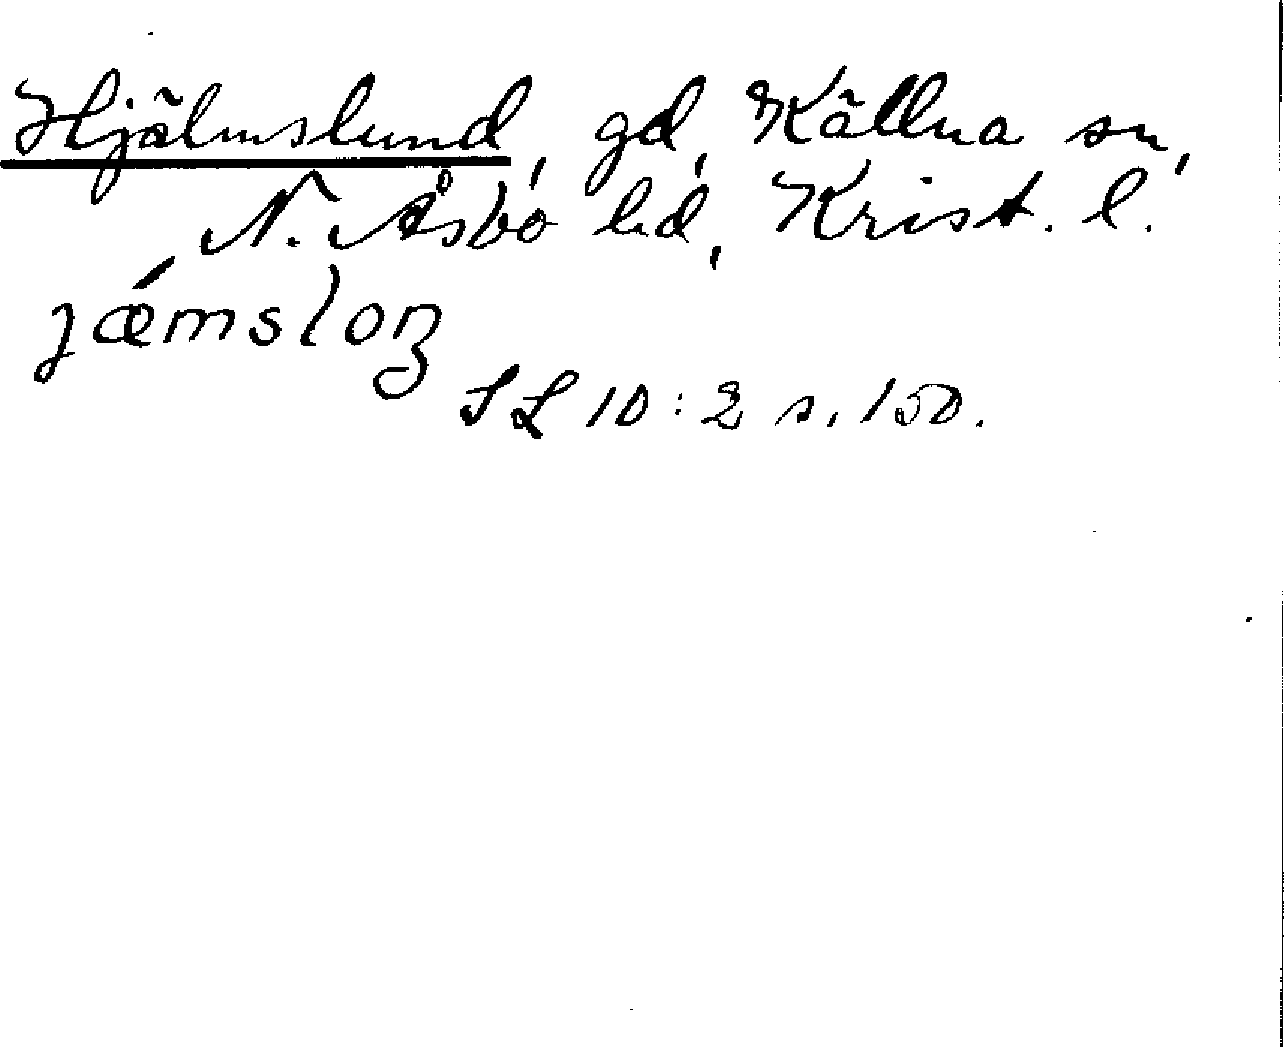 Hjälmslund, gd, Källna sn,
N. Åsbo hd, Krist. l.
jǽmsloŋ
SL 10:2 s. 150.